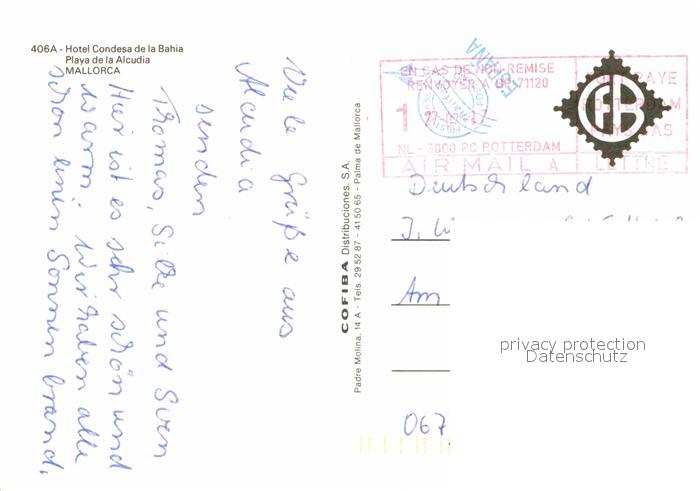 406A - Hotel Condesa de la Bahia
Playa de la Alcudia
MALLORCA
Viele Grüße aus
Alcudia
senden
Thomas, Silke und Sven
Hier ist es sehr schön und
warm. Wir haben alle
schon einen Sonnenbrand.
COFIBA Distribuciones, S.A.
Padre Molina, 14 A - Tels. 29 52 87 - 41 50 65 - Palma de Mallorca
ESPAÑA
EN CAS DE NON REMISE
RENVOYER A BP 71120
1
NL - 3000 PC ROTTERDAM
AIR MAIL A
PAYE
ROTTERDAM
PAYS BAS
LETTRE
Deutschland
Am
067
privacy protection
Datenschutz